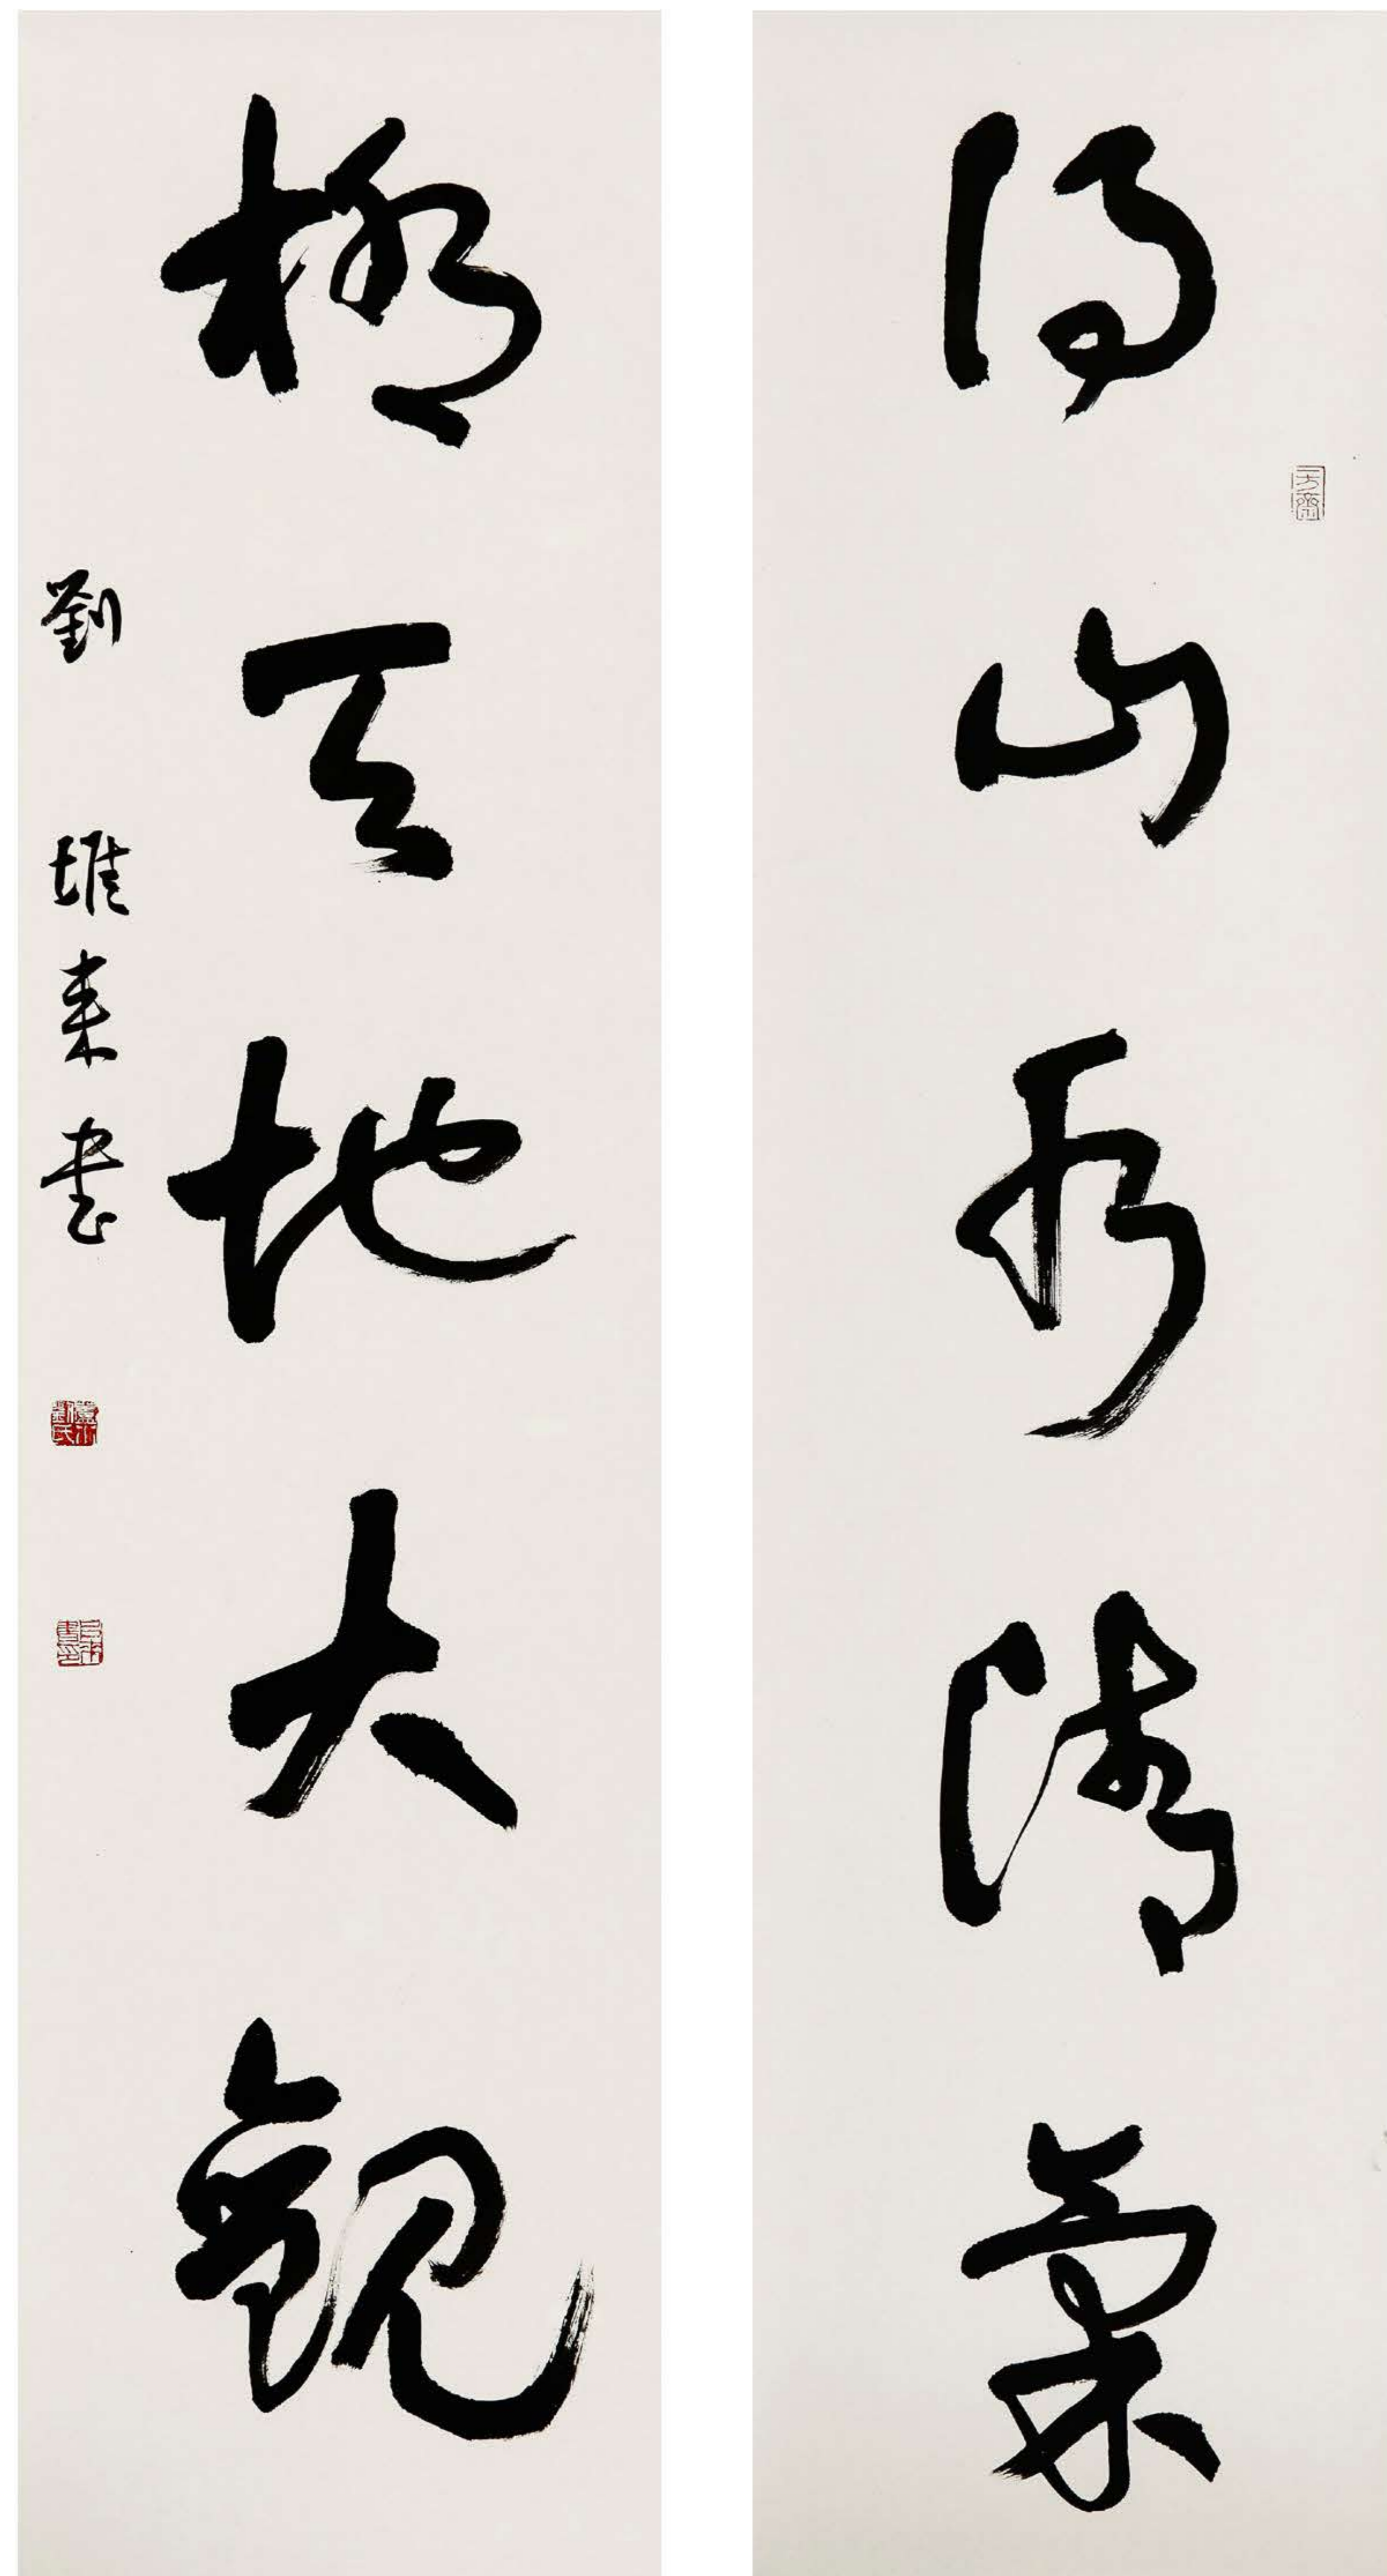 得山水清氣
極天地大觀
劉堆来書